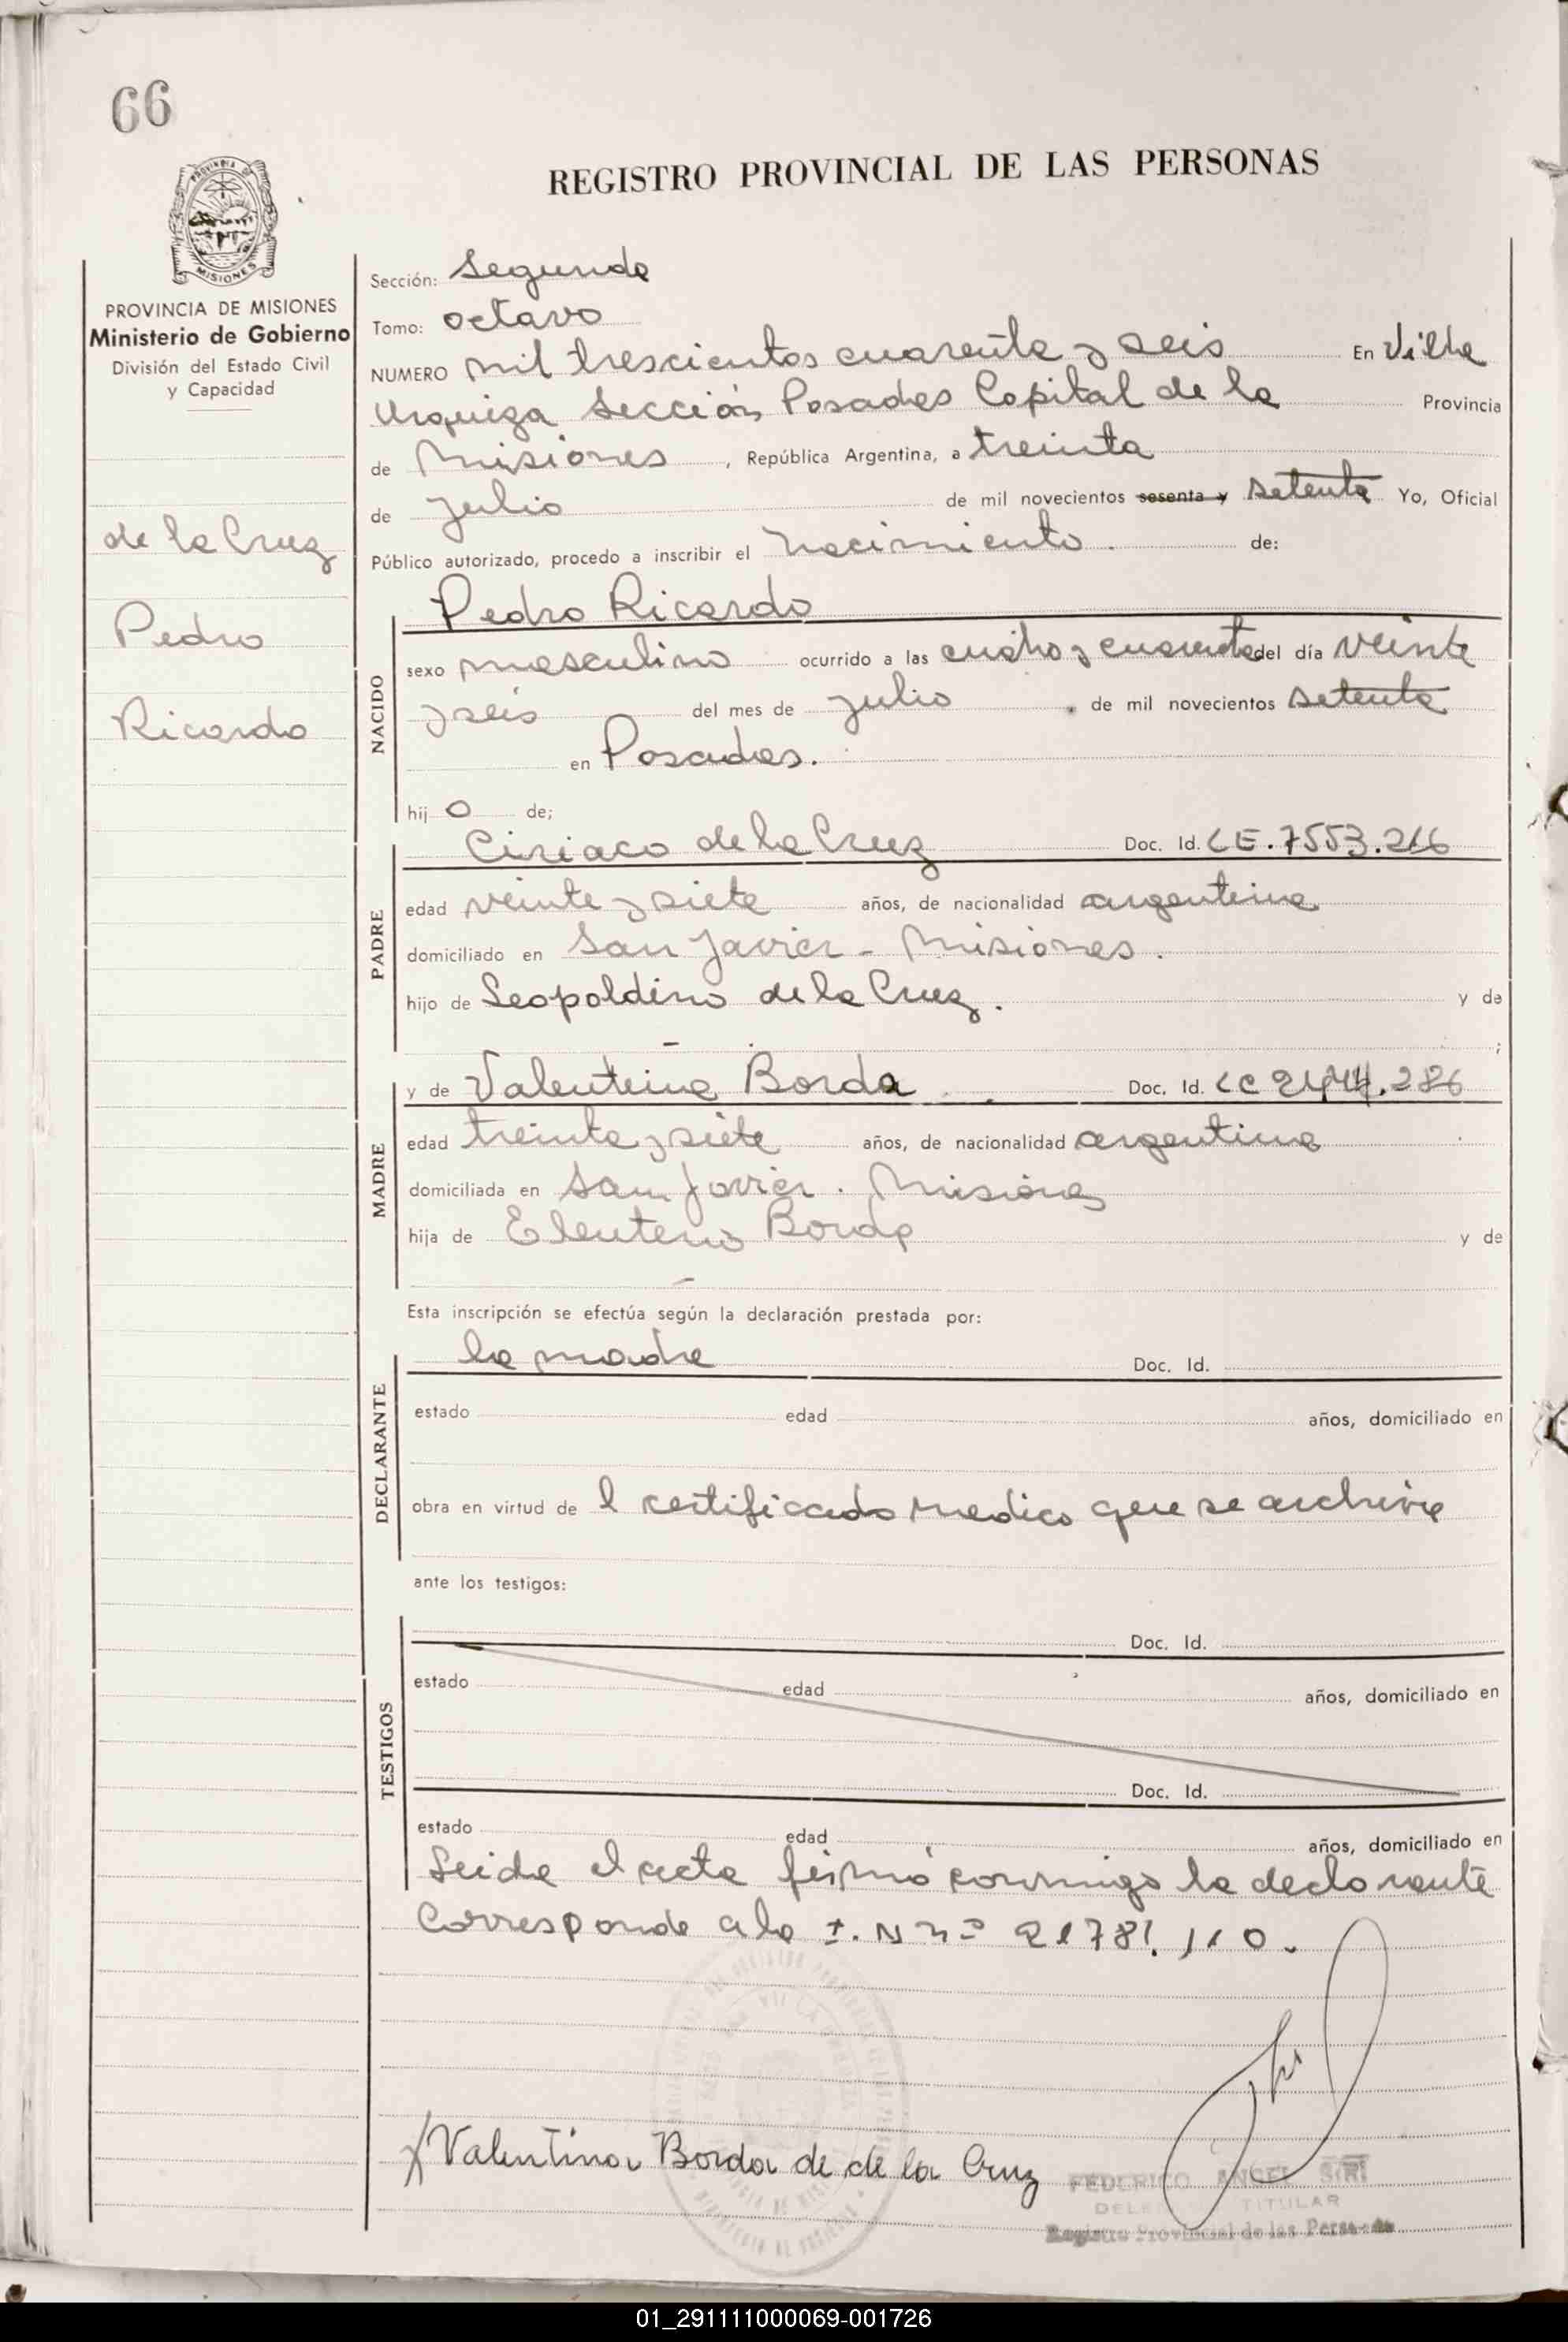 66
REGISTRO PROVINCIAL DE LAS PERSONAS
MISIONES
PROVINCIA DE MISIONES
Ministerio de Gobierno
División del Estado Civil
y Capacidad
de la Cruz
Pedro
Ricardo
Sección: Segunda
Tomo: octavo
NUMERO mil trescientos cuarenta y seis En Villa
Urquiza Sección Posadas Capital de la Provincia
de Misiones, República Argentina, a treinta
de Julio de mil novecientos sesenta y setenta Yo, Oficial
Público autorizado, procedo a inscribir el nacimiento. de:
NACIDO
Pedro Ricardo
sexo masculino ocurrido a las cuatro y cuarenta del día veinte
y seis del mes de julio de mil novecientos setenta
en Posadas.
hijo de;
PADRE
Ciriaco de la Cruz Doc. Id. LE. 7553.216
edad veinte y siete años, de nacionalidad argentina
domiciliado en San Javier - Misiones.
hijo de Leopoldino de la Cruz. y de
—;
MADRE
y de Valentina Borda Doc. Id. LC .286
edad treinta y siete años, de nacionalidad argentina
domiciliada en San Javier. Misiones
hija de Eleuterio Borda y de
—
Esta inscripción se efectúa según la declaración prestada por:
DECLARANTE
la madre Doc. Id.
estado edad años, domiciliado en
obra en virtud del certificado medico que se archiva
ante los testigos:
TESTIGOS
Doc. Id.
estado edad años, domiciliado en
Doc. Id.
estado edad años, domiciliado en
Leida el acta firmó conmigo la declarante
Corresponde a la I. N nº 21781.110.
Valentina Borda de de la Cruz
FEDERICO ANGEL SIRI
TITULAR
Registro Provincial de las Personas
01_291111000069-001726